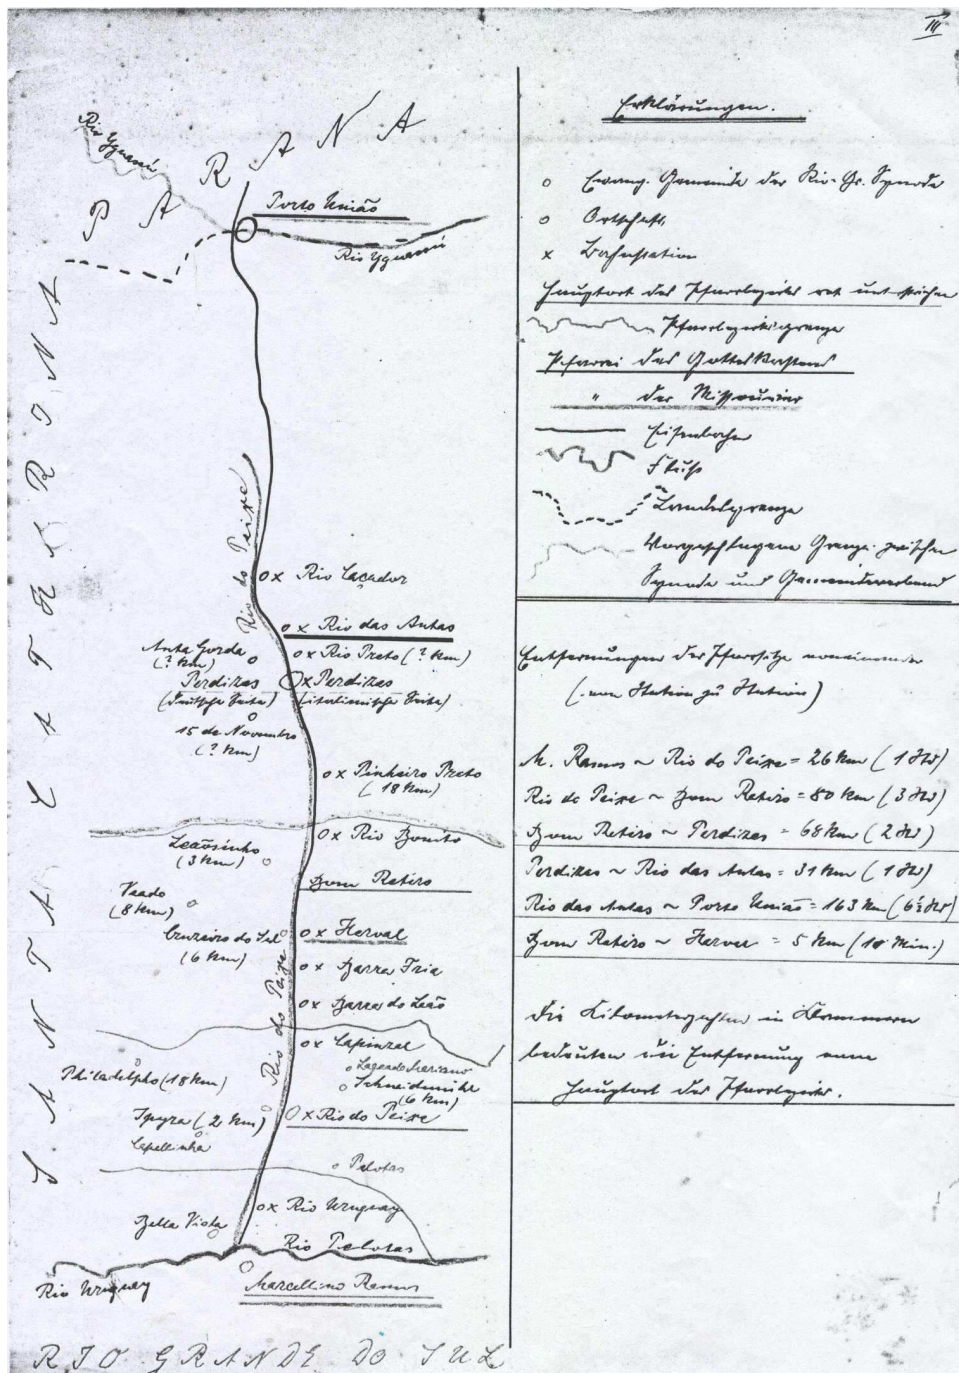 III
PARANA
Rio Yguassú
Porto União
Rio Yguassú
SANTA CATHERINA
Rio do Peixe
o x Rio Caçador
o x Rio das Antas
Anta Gorda
(? Km)
o x Rio Preto (? Km)
Perdizas
(deutsche Seite)
x Perdizas
(italienische Seite)
15 de Novembro
(? Km)
o x Pinheiro Preto
(18 Km)
o x Rio Bonito
Leãosinho
(3 Km)
Bom Retiro
Veado
(8 Km)
Cruzeiro do Sul
(6 Km)
o x Herval
o x Barra Fria
o x Barra do Leão
Rio do Peixe
o x Capinzal
Philadelpho (18 Km)
Schneidemühl
(6 Km)
Ipyra (2 Km)
O x Rio do Peixe
Capellinha
Pelotas
o x Rio Uruguay
Bella Vista
Rio Pelotas
Rio Uruguay
Marcellino Ramos
RIO GRANDE DO SUL
Erklärungen.
o Evang. Gemeinde der Rio-Gr. Synode
o Ortschaft
x Bahnstation
Hauptort des Pfarrbezirks rot unterstrichen
Pfarrbezirksgrenze
Pfarrei des Gotteskastens
" der Missourier
Eisenbahn
Fluss
Landesgrenze
Vorgeschlagene Grenze zwischen
Synode und Gemeindeverband
Entfernungen der Pfarrsitze voneinander
(von Station zu Station)
M. Ramos ~ Rio do Peixe = 26 Km (1 Std)
Rio do Peixe ~ Bom Retiro = 80 Km (3 Std)
Bom Retiro ~ Perdizas = 68 Km (2 Std)
Perdizas ~ Rio das Antas = 31 Km (1 Std)
Rio das Antas ~ Porto União = 163 Km (6½ Std)
Bom Retiro ~ Herval = 5 Km (10 Min.)
Die Kilometerzahlen in Klammern
bedeuten die Entfernung vom
Hauptort des Pfarrbezirks.